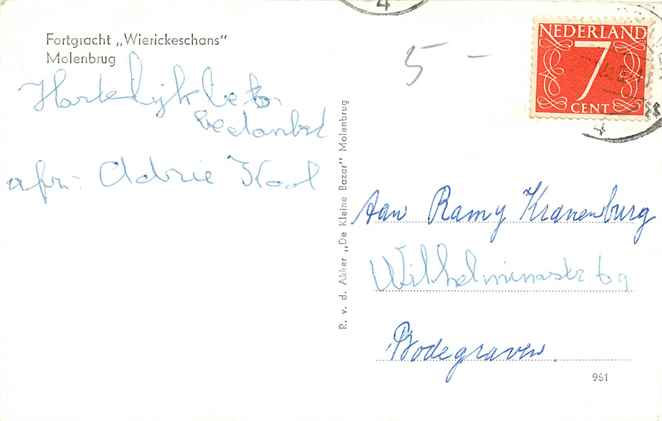 4
Fortgracht „Wierickeschans"
Molenbrug
5 -
NEDERLAND
7
CENT
Hartelijk
bedankt
afz: Adrie Kool
P. v. d. Akker „De Kleine Bazar" Molenbrug
Aan Ramy Kranenburg
Wilhelminastr 69
Bodegraven.
961